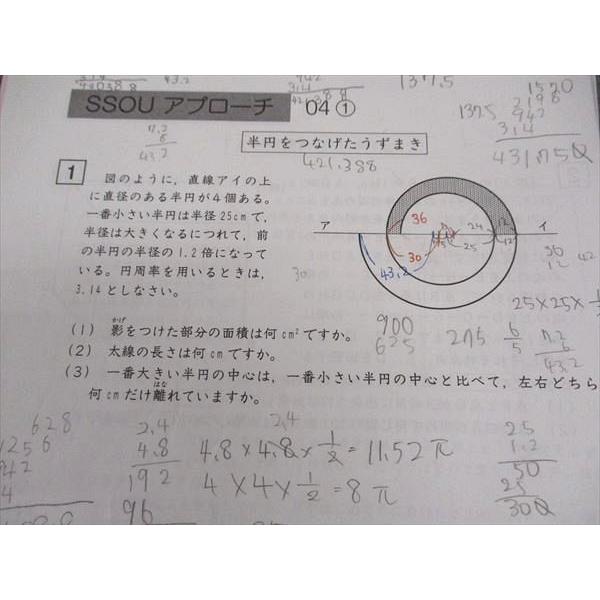 43.2
942
3.14
421388
1375
1570
2198
SSOU アプローチ 04①
7.2
6
43.2
1375
942
3.14
431.75
半円をつなげたうずまき
421.388
1
図のように，直線アイの上
に直径のある半円が4個ある。
一番小さい半円は半径25cmで，
半径は大きくなるにつれて，前
の半円の半径の1.2倍になって
いる。円周率を用いるときは，
3.14としなさい。
ア
イ
36
24
12
30
25
43.2
30
36
12
42
25×25×
(1) 影をつけた部分の面積は何cm²ですか。
かげ
900
625
275
6
5
7.2
6
43.2
(2) 太線の長さは何cmですか。
(3) 一番大きい半円の中心は，一番小さい半円の中心と比べて，左右どちら
はな
何cmだけ離れていますか。
628
1256
942
2.4
4.8
192
96
2.4
4.8×4.8×1/2=11.52π
4×4×1/2=8π
25
1.2
50
25
300